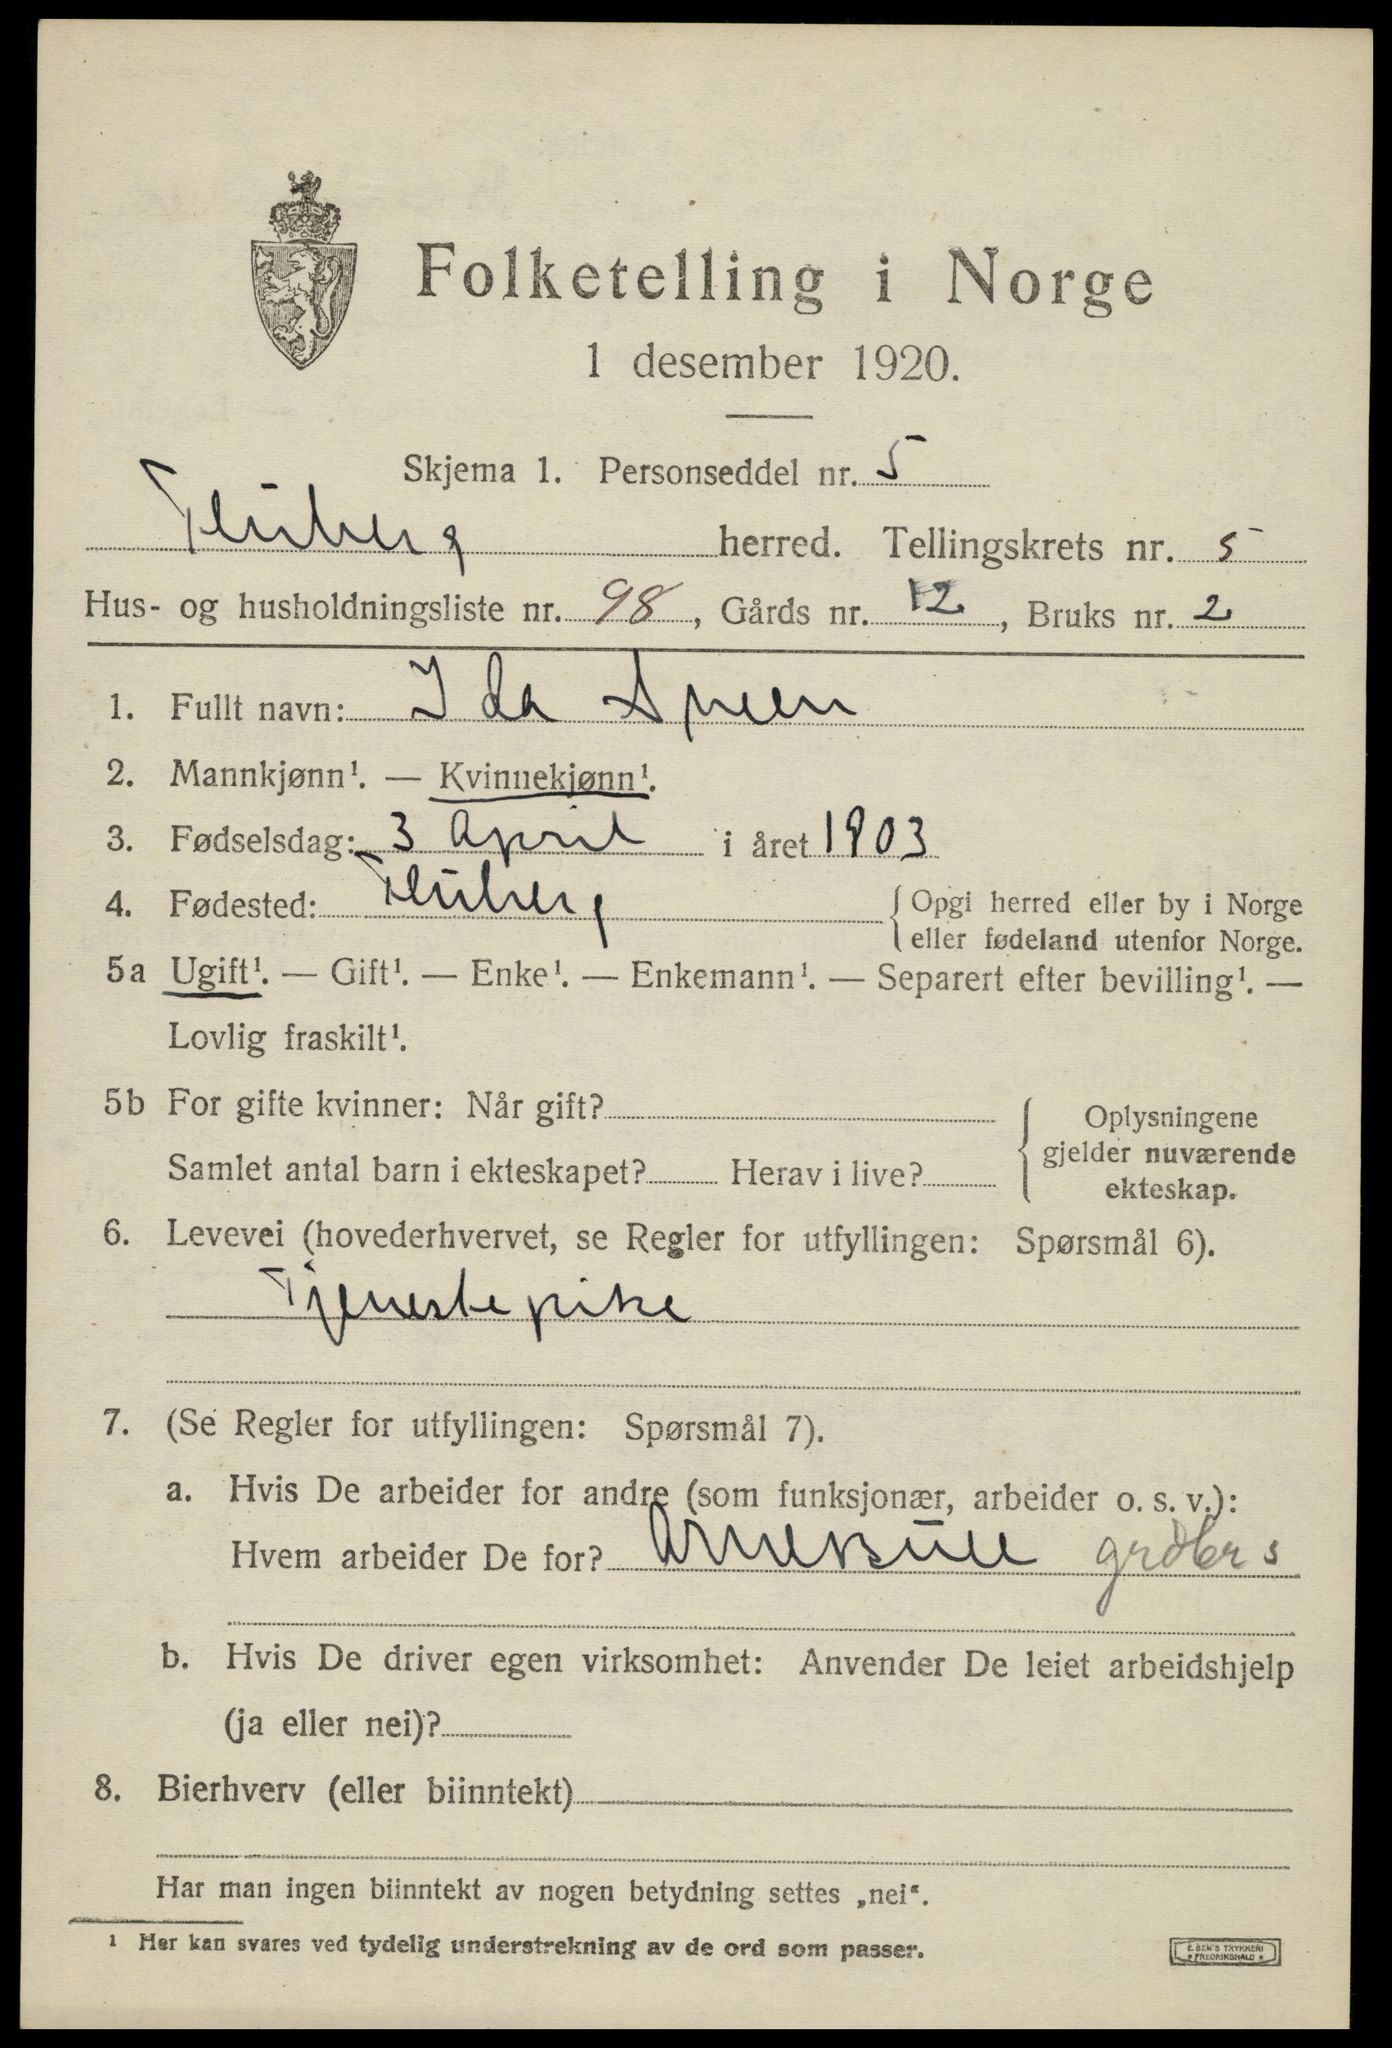 Folketelling i Norge
1 desember 1920.
Skjema 1. Personseddel nr. 5
Fluberg herred. Tellingskrets nr. 5
Hus- og husholdningsliste nr. 98, Gårds nr. 12, Bruks nr. 2
1. Fullt navn: Ida
2. Mannkjønn¹. — Kvinnekjønn¹.
3. Fødselsdag: 3 April i året 1903
4. Fødested: Fluberg { Opgi herred eller by i Norge
eller fødeland utenfor Norge.
5a Ugift¹. — Gift¹. — Enke¹. — Enkemann¹. — Separert efter bevilling¹. —
Lovlig fraskilt¹.
5b For gifte kvinner: Når gift?
Samlet antal barn i ekteskapet? Herav i live?
{ Oplysningene
gjelder nuværende
ekteskap.
6. Levevei (hovederhvervet, se Regler for utfyllingen: Spørsmål 6).
Tjenestepike
7. (Se Regler for utfyllingen: Spørsmål 7).
a. Hvis De arbeider for andre (som funksjonær, arbeider o. s. v.):
Hvem arbeider De for? Arne
b. Hvis De driver egen virksomhet: Anvender De leiet arbeidshjelp
(ja eller nei)?
8. Bierhverv (eller biinntekt)
Har man ingen biinntekt av nogen betydning settes „nei“.
¹ Her kan svares ved tydelig understrekning av de ord som passer.
E. SEM'S TRYKKERI
FREDRIKSHALD